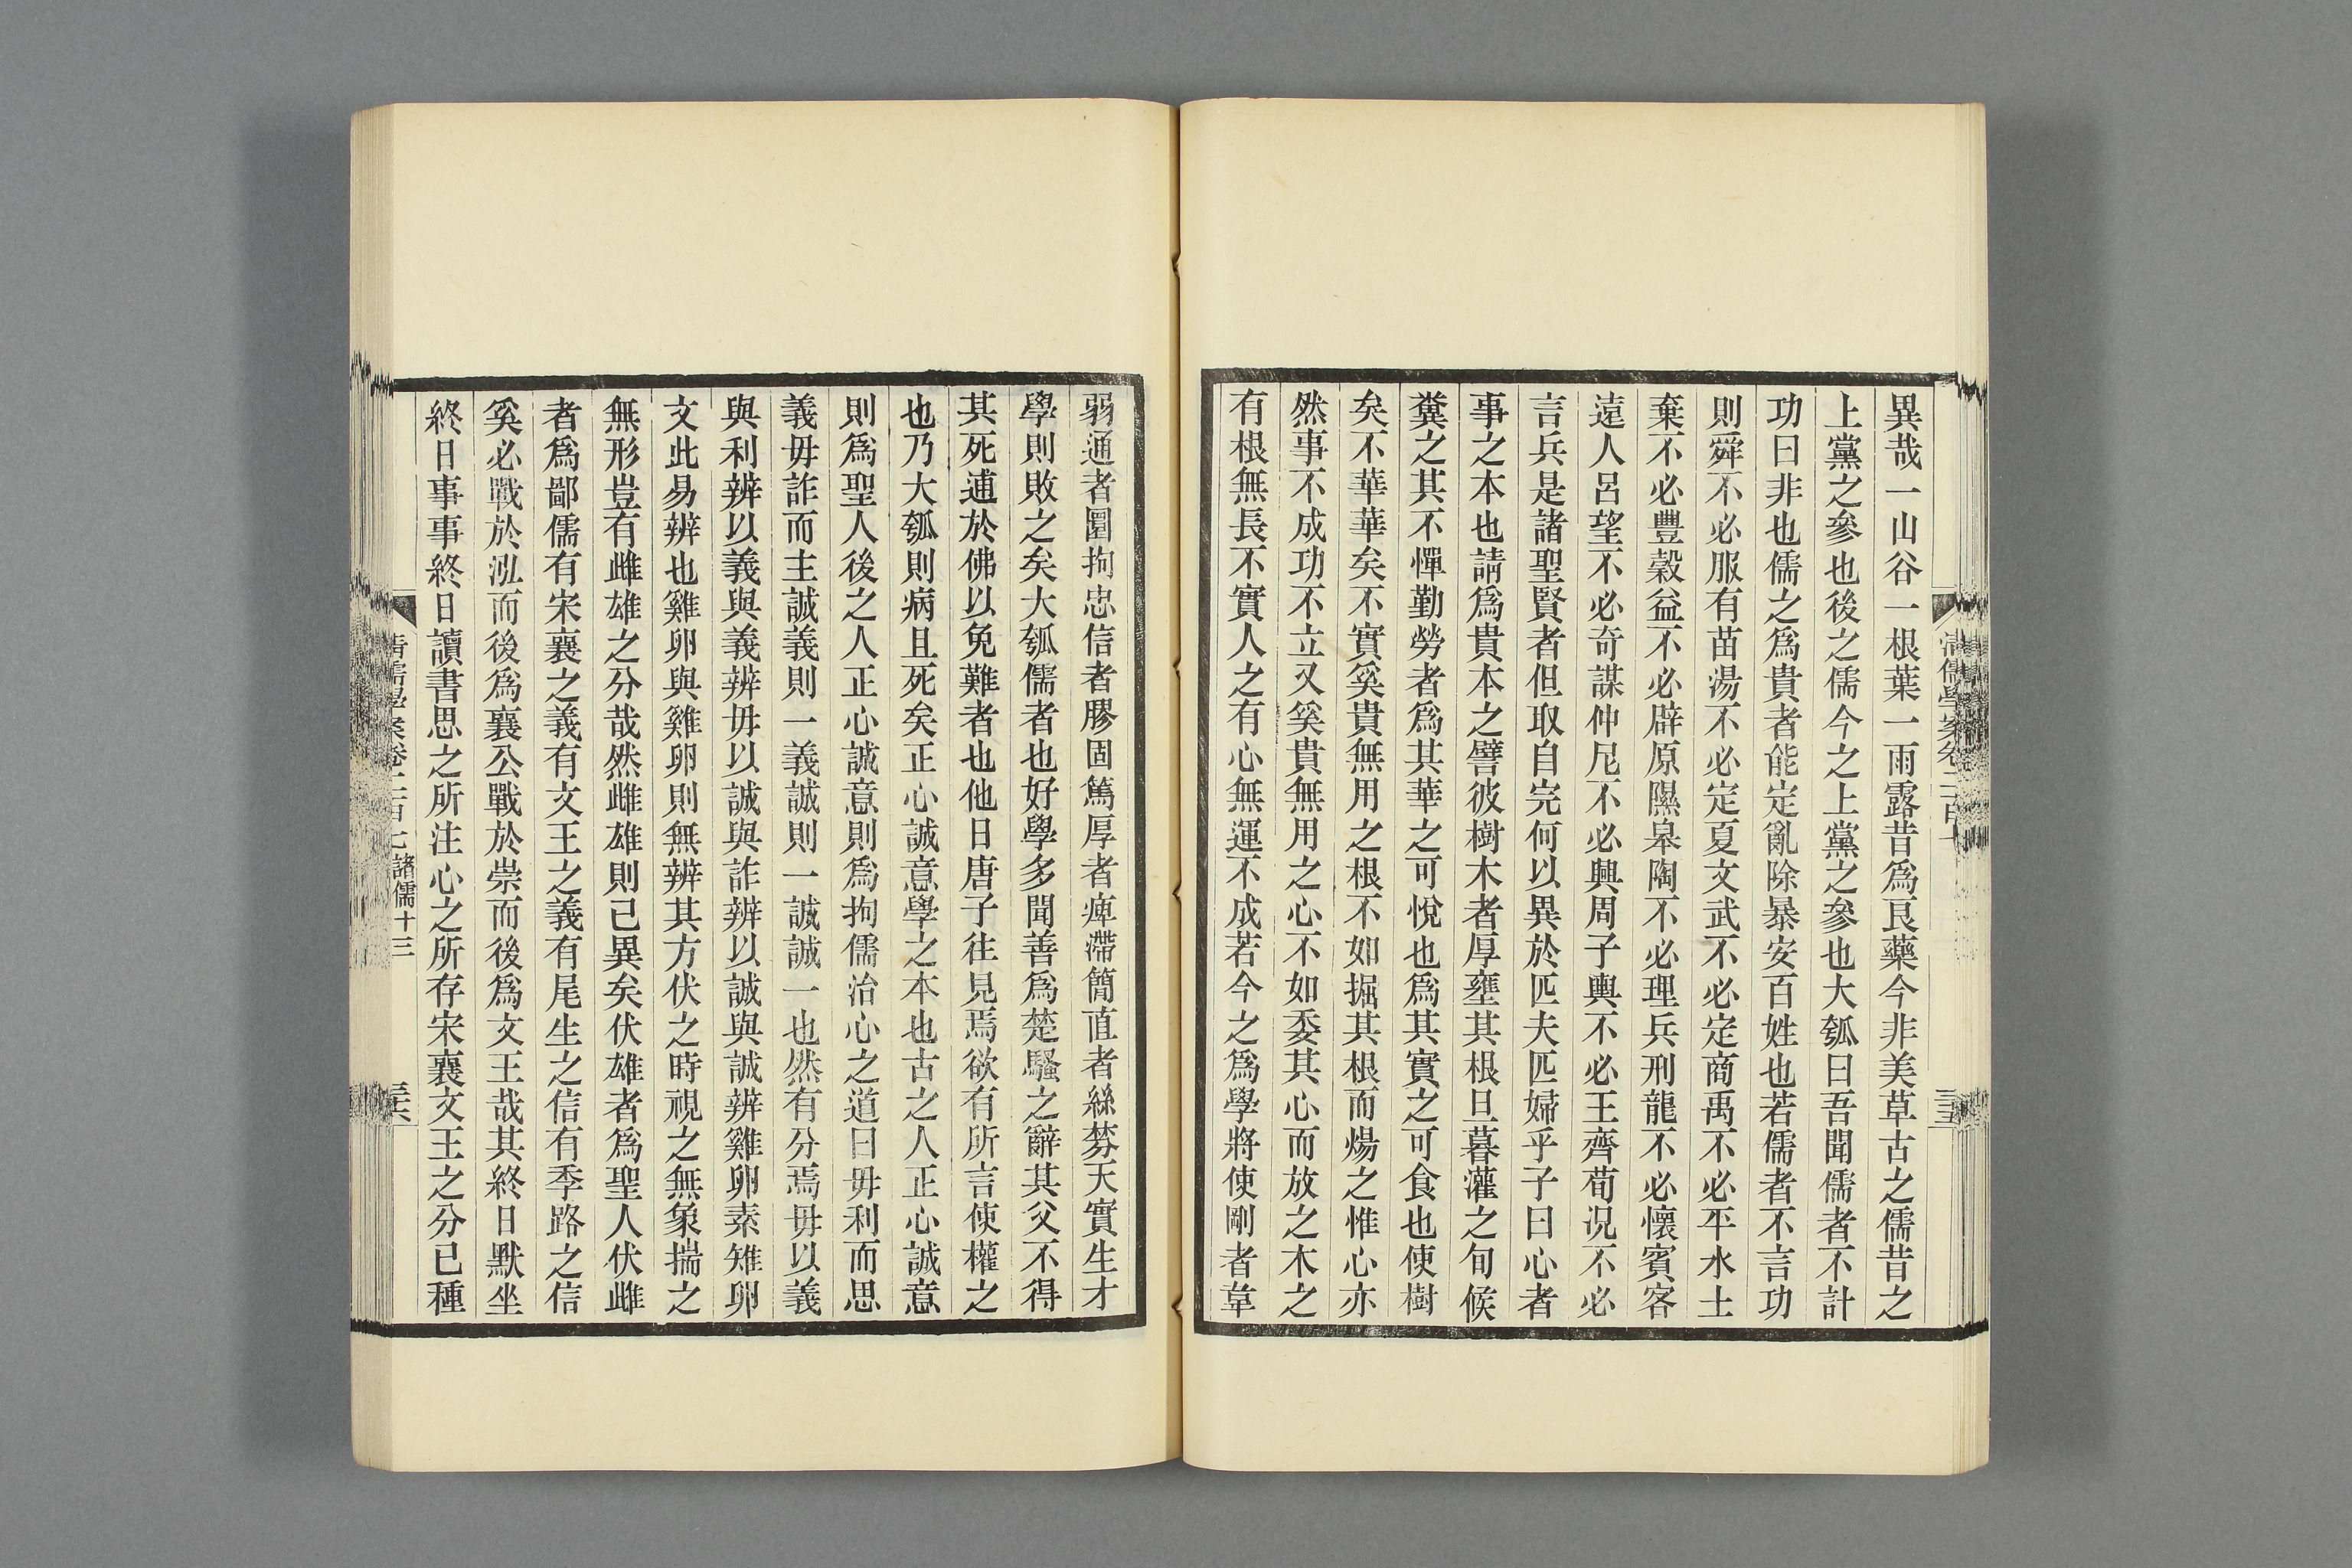 異哉一山谷一根葉一雨露昔爲艮藥今非美草古之儒昔之
上黨之參也後之儒今之上黨之參也大瓠曰吾聞儒者不計
功曰非也儒之爲貴者能定亂除暴安百姓也若儒者不言功
則舜不必服有苗湯不必定夏文武不必定商禹不必平水土
棄不必豐穀益不必辟原隰皋陶不必理兵刑龍不必懷賓客
遠人呂望不必奇謀仲尼不必興周子輿不必王齊荀況不必
言兵是諸聖賢者但取自完何以異於匹夫匹婦乎子曰心者
事之本也請爲貴本之譬彼樹木者厚壅其根旦暮灌之旬候
糞之其不憚勤勞者爲其華之可悅也爲其實之可食也使樹
矣不華華矣不實奚貴無用之根不如掘其根而煬之惟心亦
然事不成功不立又奚貴無用之心不如委其心而放之木之
有根無長不實人之有心無運不成若今之爲學將使剛者韋
弱通者圜拘忠信者膠固篤厚者痺滯簡直者絲棼天實生才
學則敗之矣大瓠儒者也好學多聞善爲楚騷之辭其父不得
其死逋於佛以免難者也他日唐子往見焉欲有所言使權之
也乃大瓠則病且死矣正心誠意學之本也古之人正心誠意
則爲聖人後之人正心誠意則爲拘儒治心之道曰毋利而思
義毋詐而主誠義則一義誠則一誠誠一也然有分焉毋以義
與利辨以義與義辨毋以誠與詐辨以誠與誠辨雞卵素雉卵
文此易辨也雞卵與雞卵則無辨其方伏之時視之無象揣之
無形豈有雌雄之分哉然雌雄則已異矣伏雄者爲聖人伏雌
者爲鄙儒有宋襄之義有文王之義有尾生之信有季路之信
奚必戰於泓而後爲襄公戰於崇而後爲文王哉其終日默坐
終日事事終日讀書思之所注心之所存宋襄文王之分已種
清儒學案卷二百七 諸儒十三
三六
清儒學案卷二百七
三五